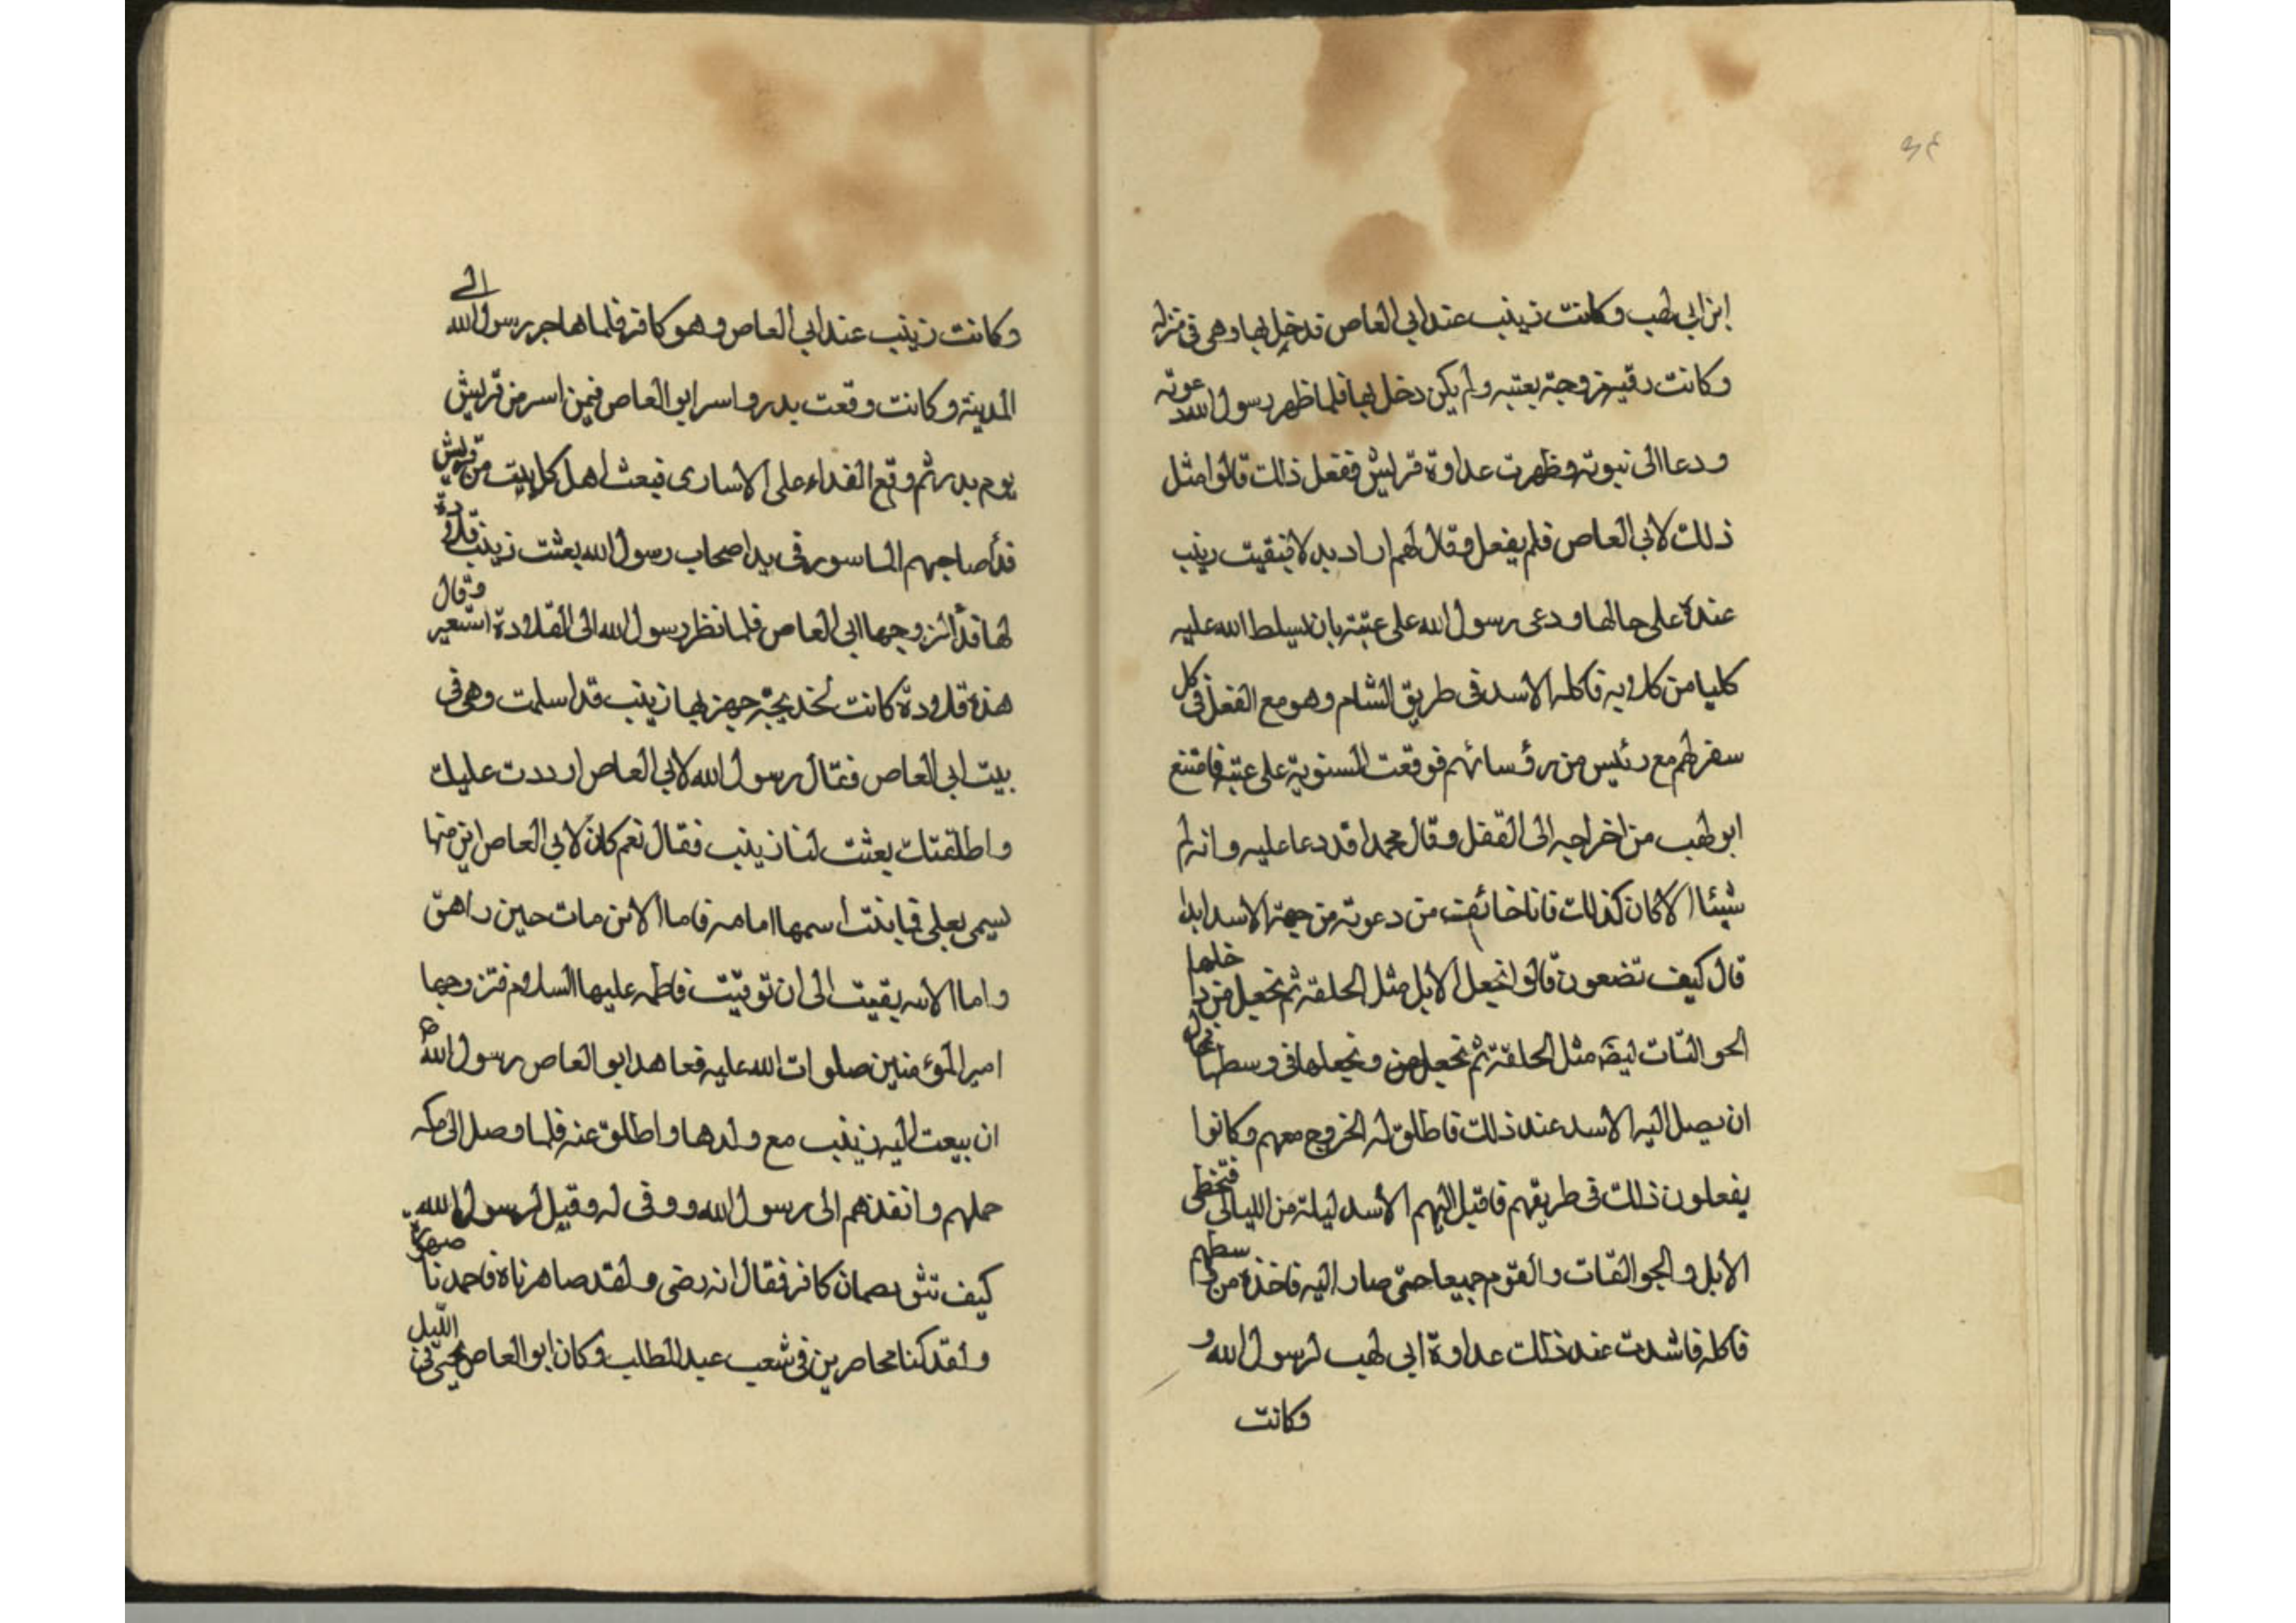 ٣٤
ابن ابي لهب وكانت زينب عند ابي العاص قد خل بها وهي في منزله
وكانت رقيه مزوجة بعتبه ولم يكن دخل بها فلما ظهر رسول الله دعوته
ودعا الى نبوته وظهرت عداوة قريش ففعل ذالك قالوا مثل
ذلك لابي العاص فلم يفعل وقال لهم اراد بدلا فبقيت زينب
عنده على حالها ودعى رسول الله على عتبة بان يسلط الله عليه
كلبا من كلابه فاكله الاسد في طريق الشام وهو مع القفل في كل
سفر لهم مع رئيس من رؤسائهم فوقعت السنوية على عتبة فامتنع
ابو لهب من اخراجه الى القفل وقال محمدا قد دعا عليه وانه لم
شيئا الا كان كذالك فانا خائف من دعوته من جهة الاسد ابدا
قال كيف تضعون قالوا نجعل الأبل مثل الحلقه ثم نجعل من داخلها
الجوالقات ايضا مثل الحلقة ثم نجعل من ونجعلها في وسطها
ان يصل اليه الاسد عند ذلك فاطلق له الخروج معهم وكانوا
يفعلون ذلك في طريقهم فاقبل اليهم الأسد ليلة من الليالي فتخطى
الأبل والجوالقات والقوم جميعا حتى صار اليه فاخذه من وسطهم
فاكله فاشدت عند ذلك عداوة ابي لهب لرسول الله و
وكانت
وكانت زينب عند ابي العاص وهو كافر فلما هاجر رسول الله الى
المدينة وكانت وقعت بدر واسر ابو العاص فيمن اسر من قريش
يوم بدر ثم وقع الفداء على الاسارى فبعث اهل كل بيت من قريش
فدأ صاجهم الماسور في يد اصحاب رسول الله بعثت زينب قلادة
لها فدأ لزوجها ابي العاص فلما نظر رسول الله الى القلادة استعبر وقال
هذه قلادة كانت لخديجة جهز بها زينب قد اسلمت وهي في
بيت ابي العاص فقال رسول الله لابي العاص ان رددت عليك
واطلقتك بعثت لنا زينب فقال نعم كان لابي العاص ابن منها
يسمى بعلي فيا بنت أسمها امامه فاما الابن مات حين راهق
واما الابنه بقيت الى ان توفيت فاطمه عليها السلام فتزوجها
امير المؤمنين صلوات الله عليه فعاهد ابو العاص رسول الله ص
ان يبعث اليه زينب مع ولدها واطلق عنه فلما وصل الى مكه
حملهم وانفذهم الى رسول الله ووفى له وقيل لرسول الله
كيف تثق بصمان كافر فقال انه رضى ولقد صاهرناه فاحمدنا صهره
ولقد كنا محاصرين في شعب عبد المطلب وكان ابو العاص يجئ في الليل